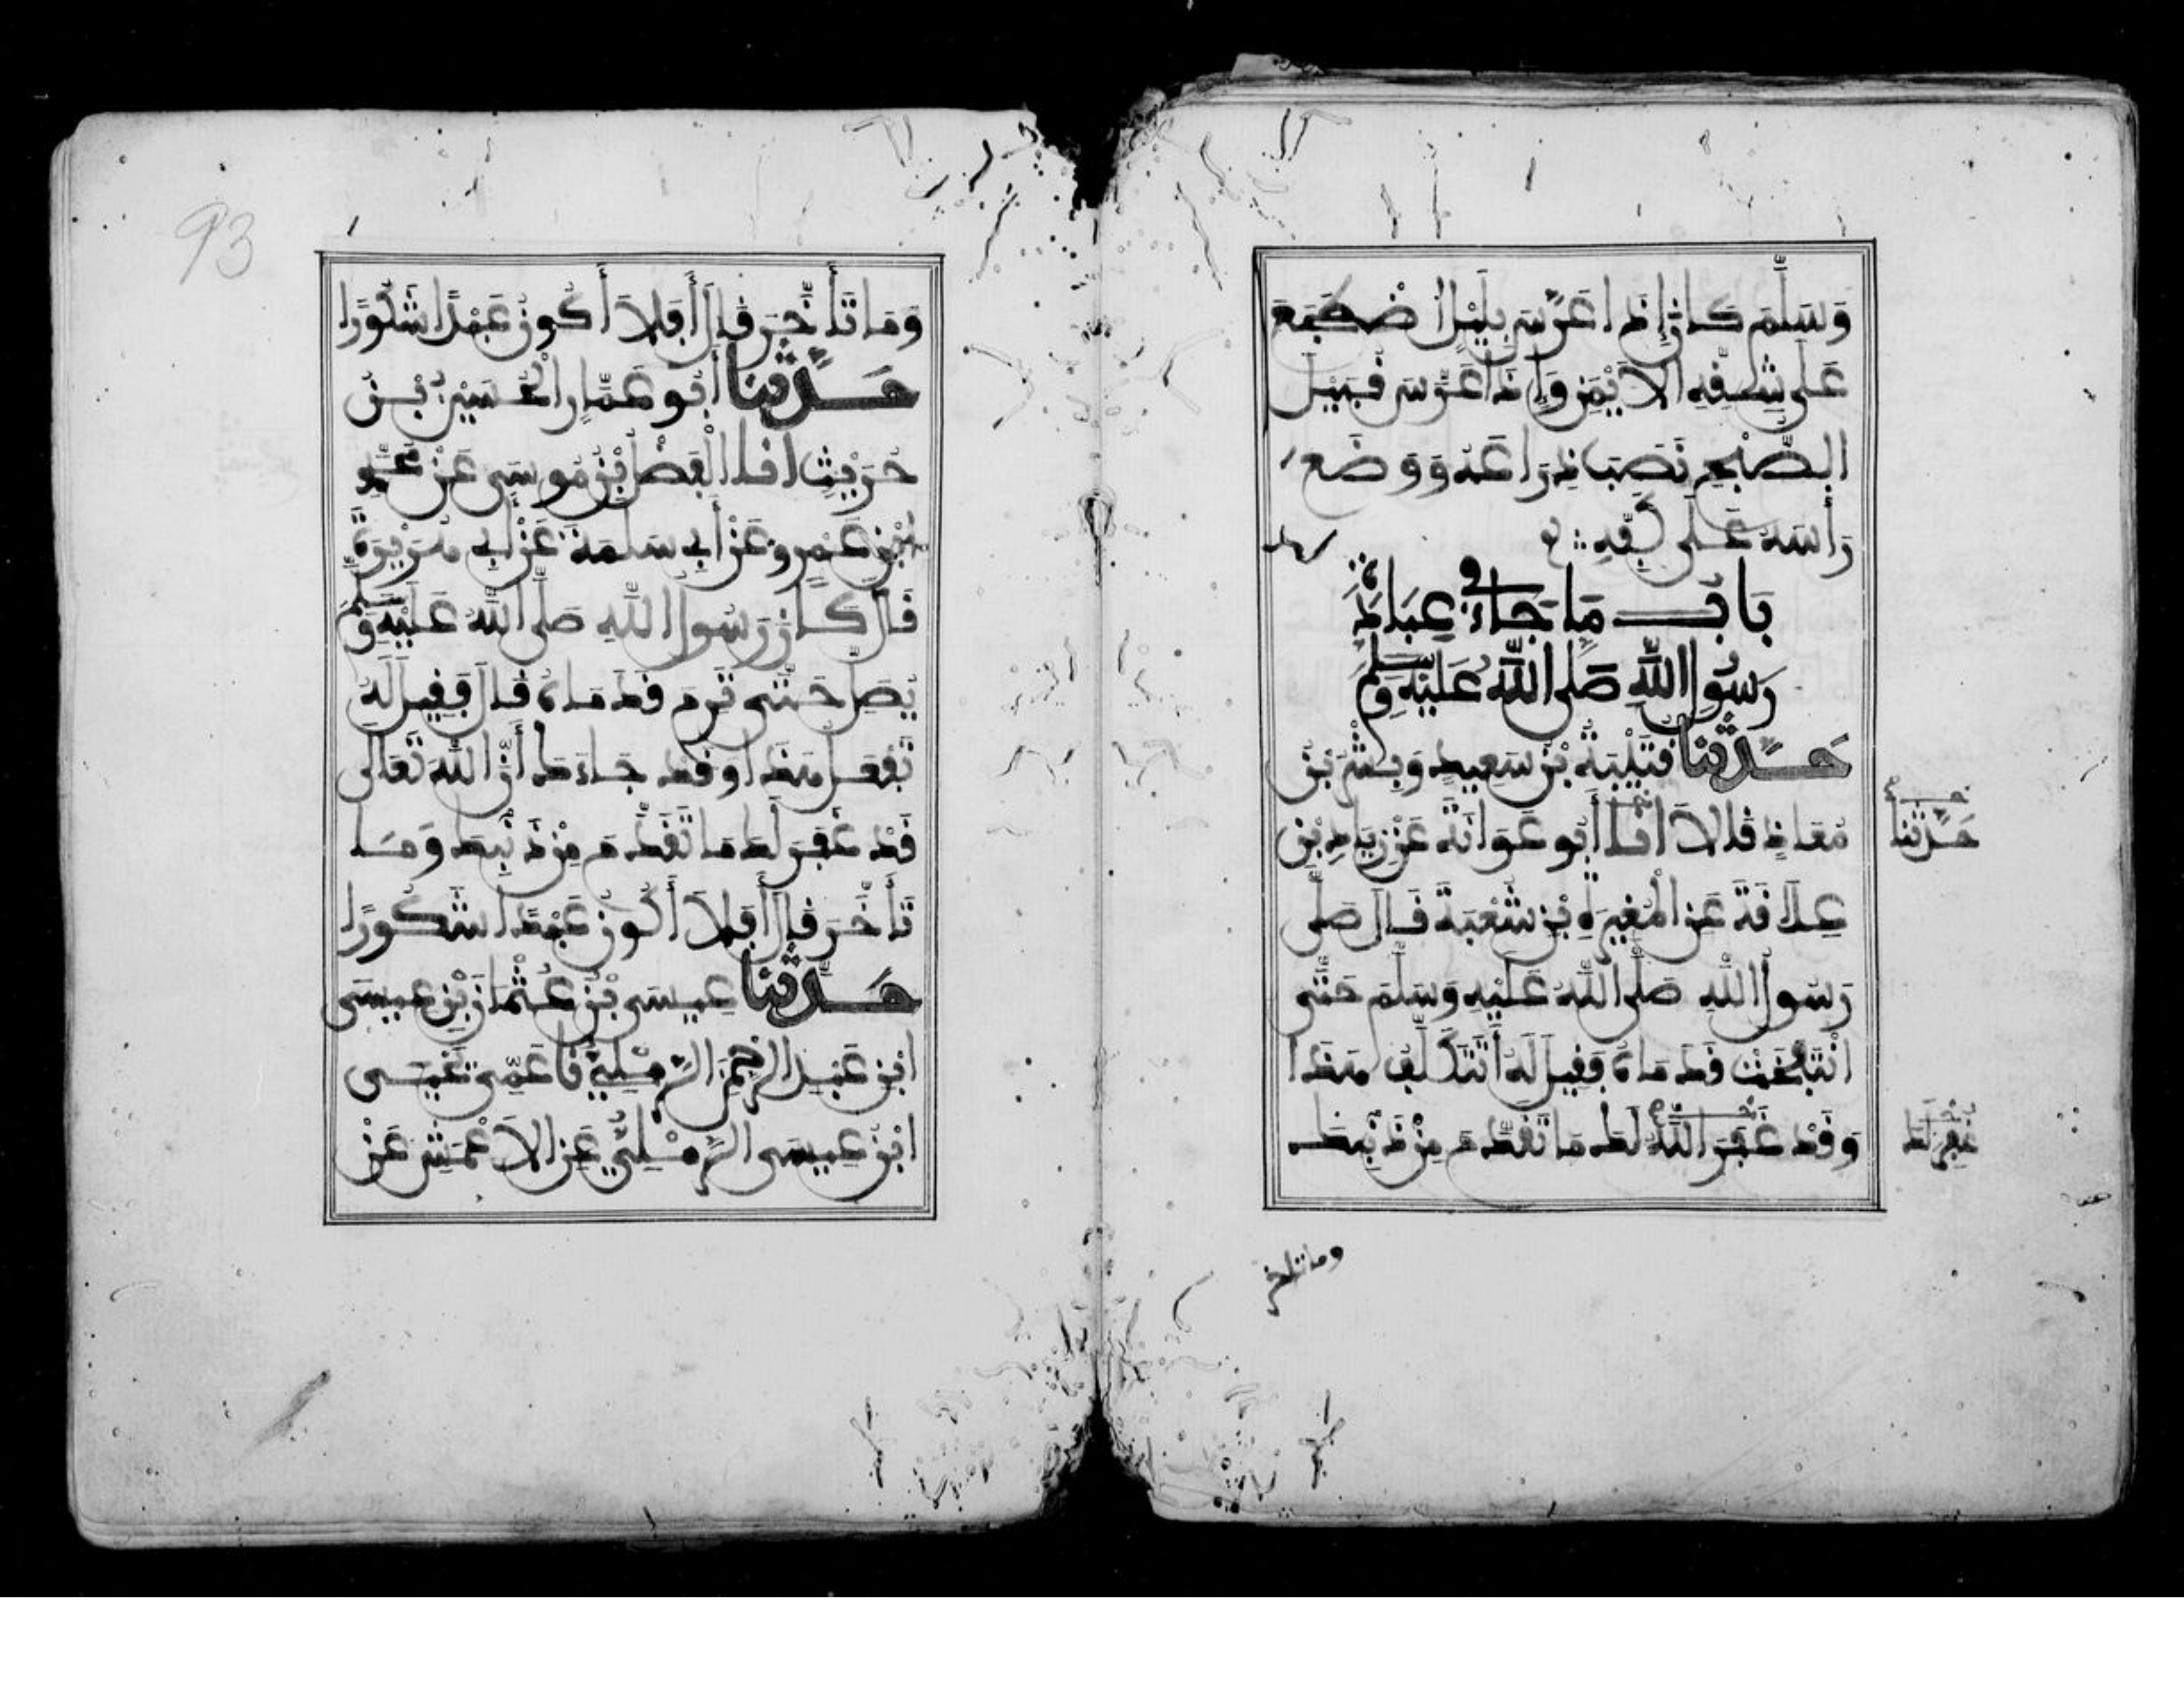 وَسَلَّمَ كَانَ إِذَا عَرَّسَ بِلَيْلٍ اضْطَجَعَ
عَلَى شِقِّهِ الْأَيْمَنِ وَإِذَا عَرَّسَ قُبَيْلَ
الصُّبْحِ نَصَبَ ذِرَاعَهُ وَوَضَعَ
رَأْسَهُ عَلَى كَفِّهِ
بَابُ مَا جَاءَ فِي عِبَادَةِ
رَسُولِ اللَّهِ صَلَّى اللَّهُ عَلَيْهِ وَسَلَّمَ
حَدَّثَنَا قُتَيْبَةُ بْنُ سَعِيدٍ وَبِشْرُ بْنُ
مُعَاذٍ قَالَا أَنَا أَبُو عَوَانَةَ عَنْ زِيَادِ بْنِ
عِلَاقَةَ عَنِ الْمُغِيرَةِ بْنِ شُعْبَةَ قَالَ صَلَّى
رَسُولُ اللَّهِ صَلَّى اللَّهُ عَلَيْهِ وَسَلَّمَ حَتَّى
انْتَفَخَتْ قَدَمَاهُ فَقِيلَ لَهُ أَتَتَكَلَّفُ هَذَا
وَقَدْ غَفَرَ اللَّهُ لَكَ مَا تَقَدَّمَ مِنْ ذَنْبِكَ
حَدَّثَنَا
غُفِرَ لَكَ
وما تأخر
93
وَمَا تَأَخَّرَ قَالَ أَفَلَا أَكُونُ عَبْدًا شَكُورًا
حَدَّثَنَا أَبُو عَمَّارٍ الْحُسَيْنُ بْنُ
حُرَيْثٍ أَنَا الْفَضْلُ بْنُ مُوسَى عَنْ مُحَمَّدِ
بْنِ عَمْرٍو عَنْ أَبِي سَلَمَةَ عَنْ أَبِي هُرَيْرَةَ
قَالَ كَانَ رَسُولُ اللَّهِ صَلَّى اللَّهُ عَلَيْهِ وَسَلَّمَ
يُصَلِّ حَتَّى تَرِمَ قَدَمَاهُ قَالَ فَقِيلَ لَهُ
تَفْعَلُ هَذَا وَقَدْ جَاءَكَ أَنَّ اللَّهَ تَعَالَى
قَدْ غَفَرَ لَكَ مَا تَقَدَّمَ مِنْ ذَنْبِكَ وَمَا
تَأَخَّرَ قَالَ أَفَلَا أَكُونُ عَبْدًا شَكُورًا
حَدَّثَنَا عِيسَى بْنُ عُثْمَانَ بْنِ عِيسَى
ابْنِ عَبْدِ الرَّحْمَنِ الرَّمْلِيُّ نَا عَمِّي يَحْيَى
ابْنُ عِيسَى الرَّمْلِيُّ عَنِ الْأَعْمَشِ عَنْ